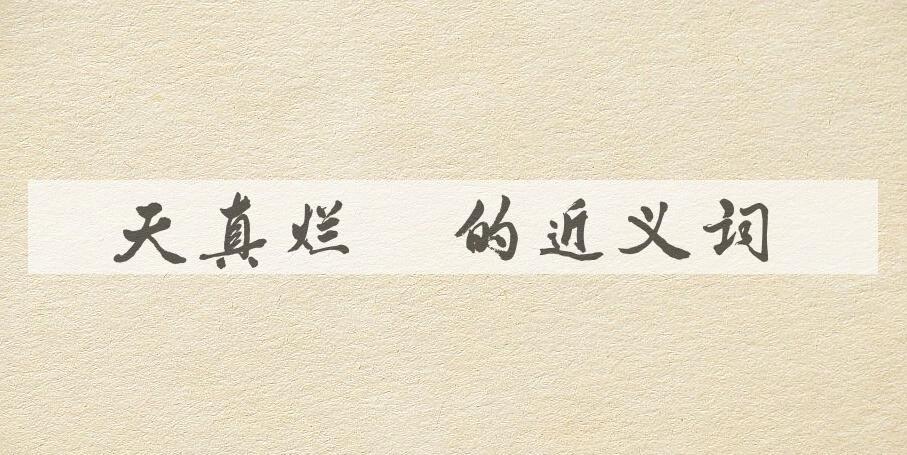 天真烂 的近义词